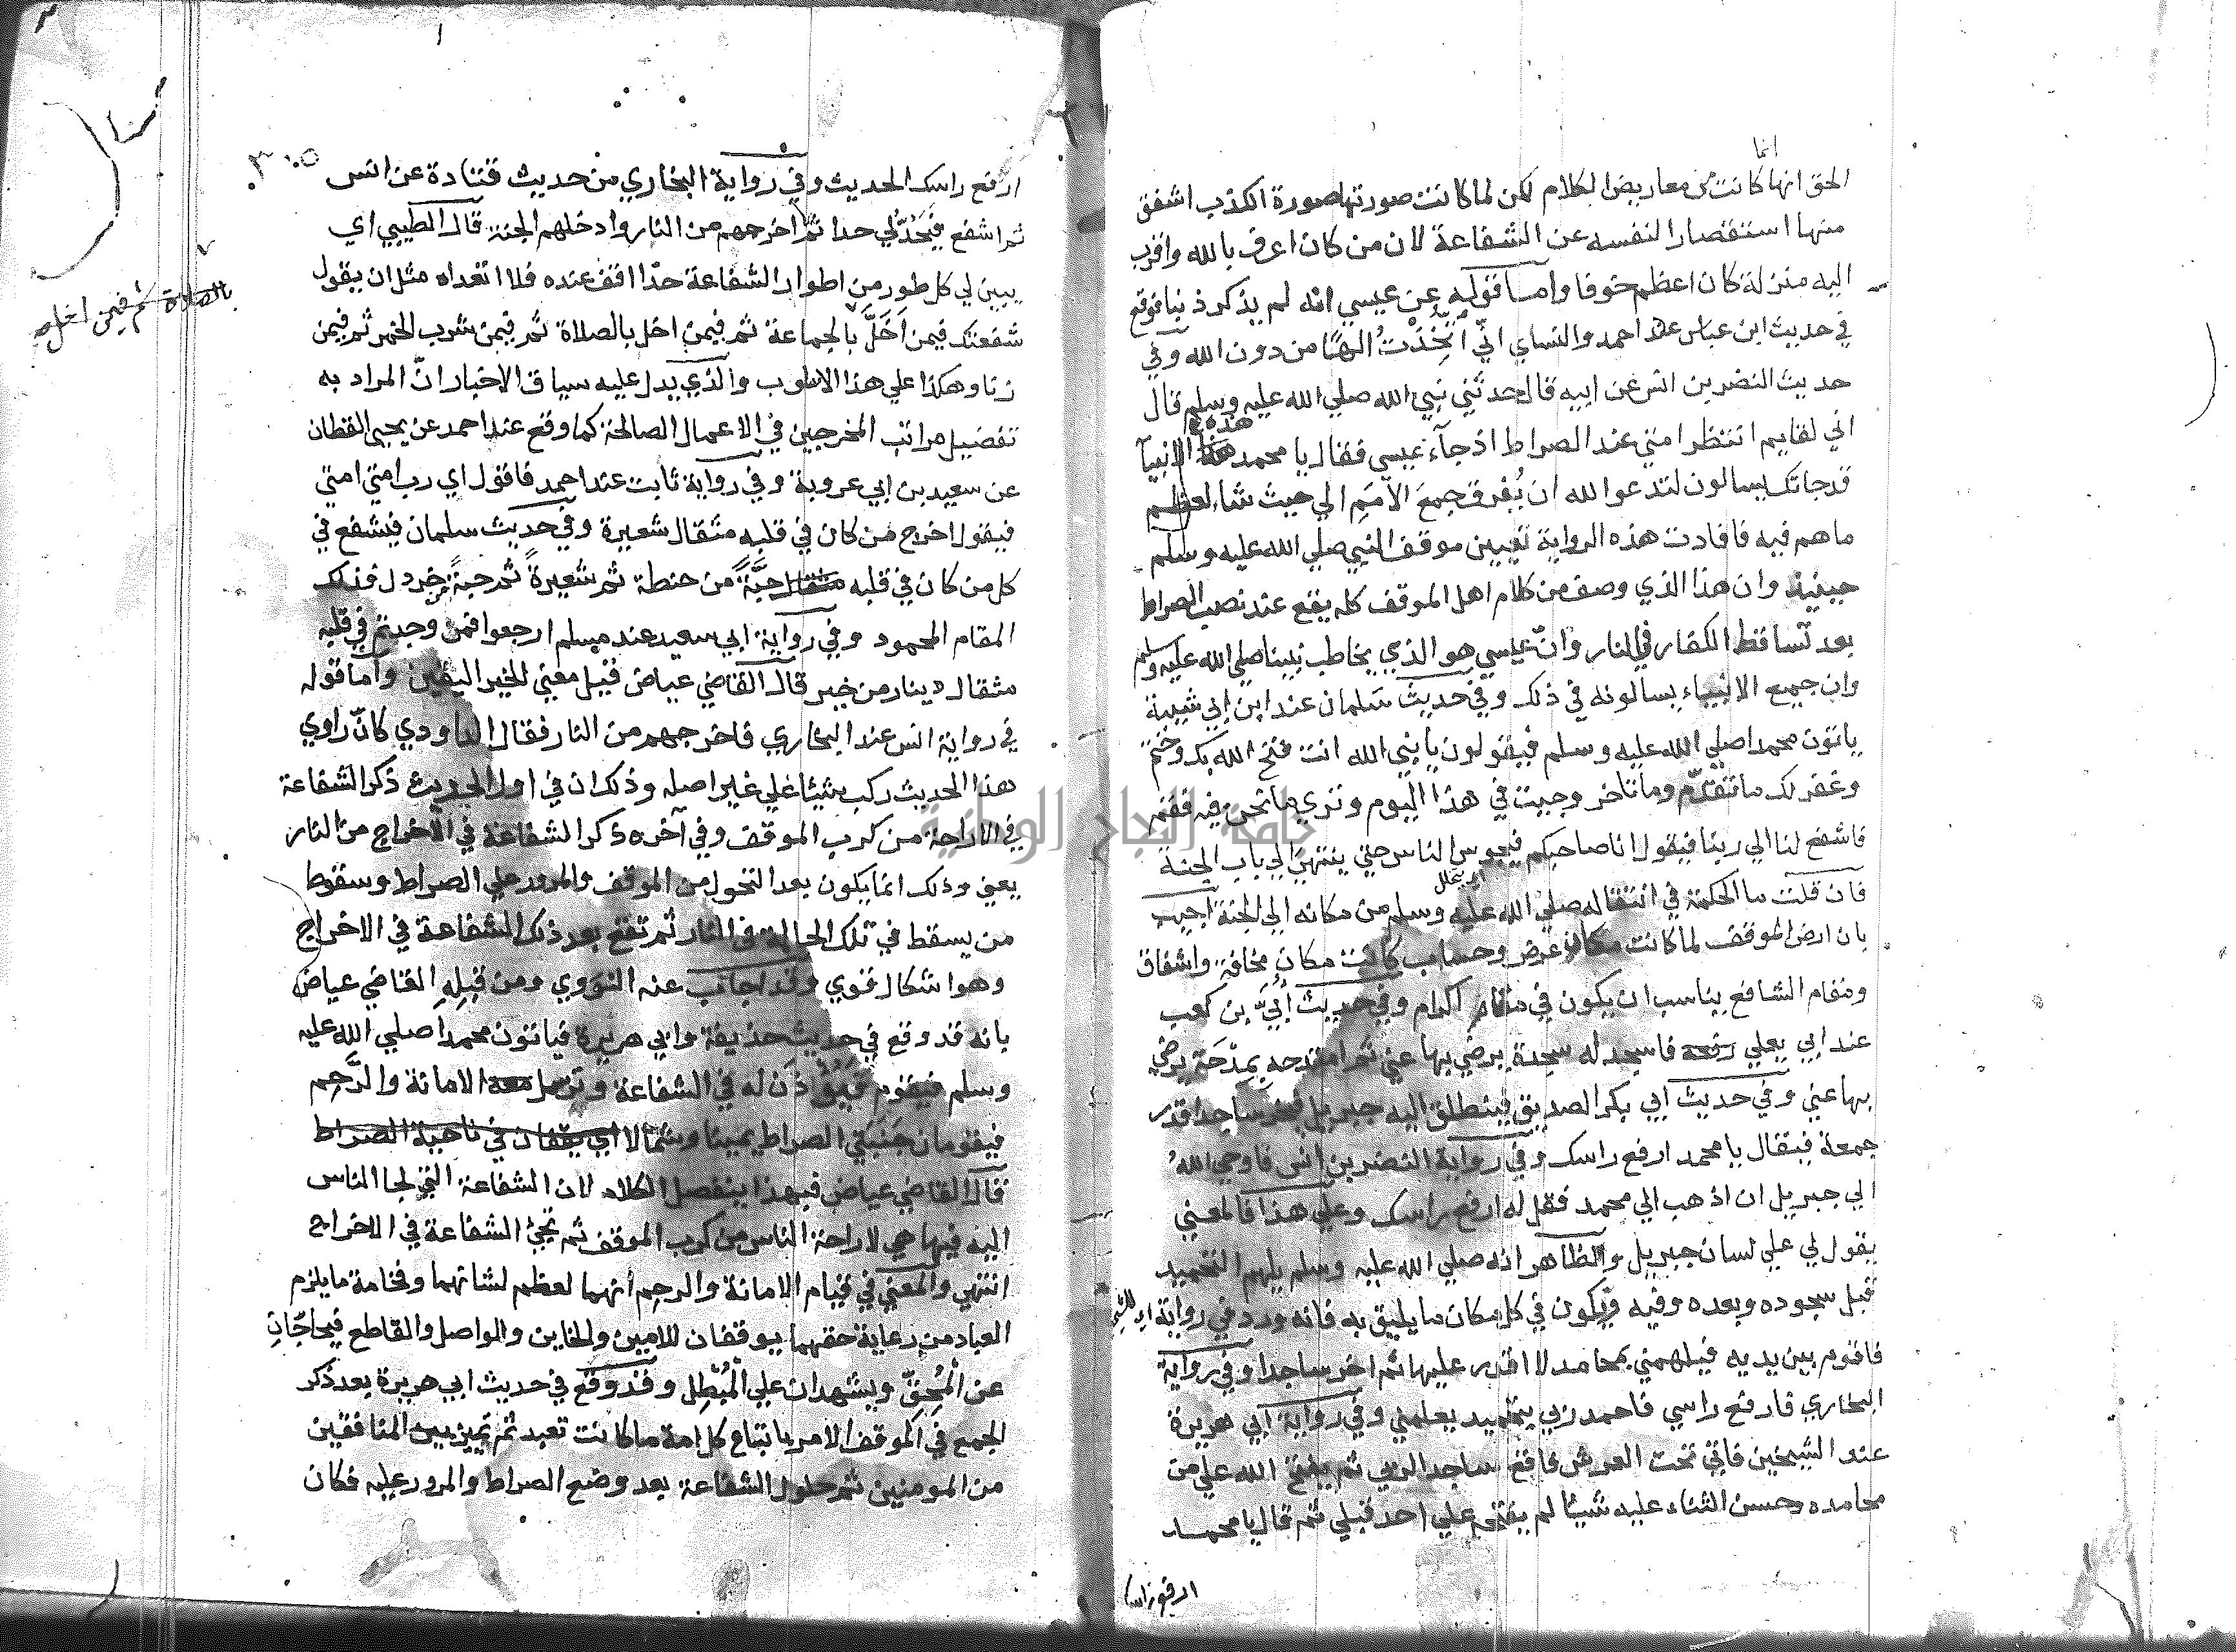 انما
الحق انها كانت من معاريض الكلام لكن لما كانت صورتها صورة الكذب اشفق
منها استقصارا لنفسه عن الشفاعة لان من كان اعرف بالله واقرب
اليه منزلة كان اعظم خوفا واما قوله عن عيسي انه لم يذكر ذنبا فوقع
في حديث ابن عباس عند احمد والنساي اني اتُّخِذْتُ الهًا من دون الله وفي
حديث النضر بن انس عن ابيه قال حدثني نبي الله صلي الله عليه وسلم قال
اني لقايم انتظر امتي عند الصراط اذ جآء عيسي فقال يا محمد هذه الانبيآ
قد جاتك يسالون لتدعوا الله ان يُفرق جمعَ الاُمَمِ الي حيث شاء لعظم
ما هم فيه فافادت هذه الرواية تعيين موقف النبي صلي الله عليه وسلم
حينيذ وان هذا الذي وصف من كلام اهل الموقف كله يقع عند نصب الصراط
بعد تساقط الكفار في النار وانّ عيسي هو الذي يخاطب نبينا صلي الله عليه وسلم
وان جميع الانبياء يسالونه في ذلك وفي حديث سَلمان عند ابن ابي شيبة
ياتون محمدا صلي الله عليه وسلم فيقولون يا نبي الله انت فتح الله بك وختم
وغفر لك ما تقدّم وما تاخر وجيت في هذا اليوم وتري ما نحن فيه فقم
فاشفع لنا الي ربنا فيقول انا صاحبكم فيجوس الناس حتي ينتهي الي باب الجنة
فان قلت ما الحكمة في انتقاله صلي الله عليه وسلم من مكانه الي الجنة اجيب
بان ارض الموقف لما كانت مكان عرض وحساب كانت مكان مخافة واشفاق
ومقام الشافع يناسب ان يكون في مقام اكرام وفي حديث اُبَيِّ بن كعب
عند ابي يعلي رفعه فاسجد له سجدة يرضي بها عني ثم امتدحه بمِدْحَةٍ يرضي
بها عني وفي حديث ابي بكر الصديق فينطلق اليه جبريل فيخر ساجدا قدر
جمعة فيقال يا محمد ارفع راسك وفي رواية النضر بن انس فاوحي اللهُ
الي جبريل ان اذهب الي محمد فقل له ارفع راسك وعلي هذا فالمعني
يقول لي علي لسان جبريل والظاهر انه صلي الله عليه وسلم يلهم التحميد
قبل سجوده وبعده وفيه ويكون في كل مكان ما يليق به فانه ورد في رواية
فاقوم بين يديه فيلهمني بمحامد لا اقدر عليها ثم اخر ساجدا وفي رواية
البخاري فارفع راسي فاحمد ربي بتحميد يعلمني وفي رواية ابي هريرة
عند الشيخين فاتي تحت العرش فاقع ساجدا لربي ثم يفتح الله علي من
محامده وحسن الثناء عليه شيئا لم يفتحه علي احد قبلي ثم قال يا محمد
ارفع راسك
ارفع راسك الحديث وفي رواية البخاري من حديث قتادة عن انس
ثم اشفع فيَحُدُّ لي حدا ثم اخرجهم من النار وادخلهم الجنة قال الطيبي اي
يبين لي كل طور من اطوار الشفاعة حدًّا اقف عنده فلا اتعداه مثل ان يقول
شفعتك فيمن اَخَلَّ بالجماعة ثم فيمن اخل بالصلاة ثم فيمن شرب الخمر ثم فيمن
زنا وهكذا علي هذا الاسلوب والذي يدل عليه سياق الاخبار انّ المراد به
تفضيل مراتب المخرجين في الاعمال الصالحة كما وقع عند احمد عن يحيي القطان
عن سعيد بن ابي عروبة وفي رواية ثابت عند احمد فاقول اي رب امتي امتي
فيقول اخرج من كان في قلبه مثقال شعيرة وفي حديث سلمان فيشفع في
كل من كان في قلبه مثقال حبَّةً من حنطة ثم شعيرةً ثم حبةً من خردل فذلك
المقام المحمود وفي رواية ابي سعيد عند مسلم ارجعوا فمن وجدتم في قلبه
مثقال دينار من خير قال القاضي عياض قيل معني الخير اليقين واما قوله
في رواية انس عند البخاري فاخرجهم من النار فقال الداودي كانّ راوي
هذا الحديث ركب شيئا علي غير اصله وذلك ان في اول الحديث ذكر الشفاعة
في الاراحة من كرب الموقف وفي آخره ذكر الشفاعة في الاخراج من النار
يعني وذلك انما يكون بعد التحول من الموقف والمرور علي الصراط وسقوط
من يسقط في تلك الحالة في النار ثم تقع بعد ذلك الشفاعة في الاخراج
وهو اشكال قوي وقد اجاب عنه النووي ومن قبله القاضي عياض
بانه قد وقع في حديث حذيفة وابي هريرة فياتون محمدا صلي الله عليه
وسلم فيقوم فيُؤْذَن له في الشفاعة وترسل معه الامانة والرَّحِم
فيقومان جَنَبَتَي الصراط يمينا وشمالا اي يقفان في ناحية الصراط
قال القاضي عياض فبهذا ينفصل الكلام لان الشفاعة التي لجا الناس
اليه فيها هي لاراحة الناس من كرب الموقف ثم تجئ الشفاعة في الاخراج
انتهي والمعني في قيام الامانة والرحم انهما لعظم لشانهما وفخامة ما يلزم
العباد من رعاية حقهما يوقفان للامين والخاين والواصل والقاطع فيحاجّان
عن المُحِقِّ ويشهدان علي المُبْطِل وقد وقع في حديث ابي هريرة بعد ذكر
الجمع في الموقف الامر باتباع كل امة ما كانت تعبد ثم تمييز بين المنافقين
من المومنين ثم حلول الشفاعة بعد وضع الصراط والمرور عليه فكان
بالصلاة ثم فيمن اخل